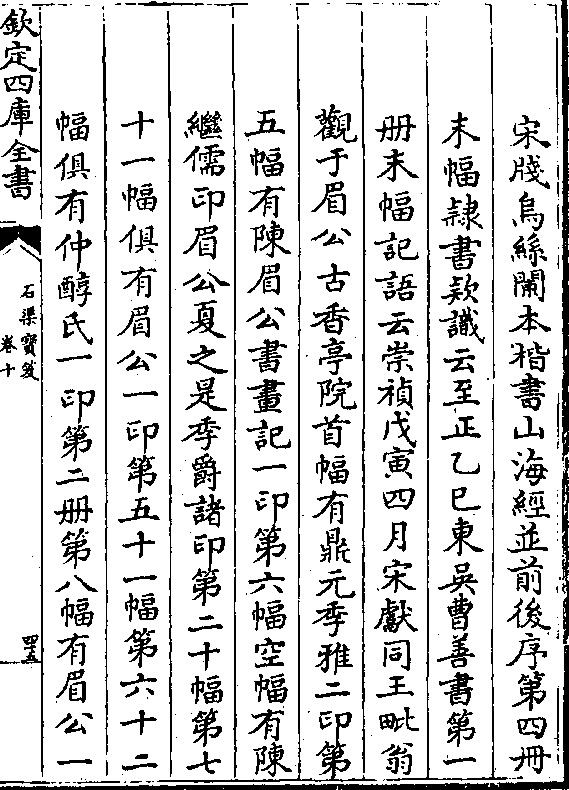 宋牋烏絲闌本楷書山海經並前後序第四冊
末幅隷書款識云至正乙巳東吳曹善書第一
册末幅記語云崇禎戊寅四月宋獻同王毗翁
觀于眉公古香亭院首幅有鼎元季雅二印第
五幅有陳眉公書畫記一印第六幅空幅有陳
繼儒印眉公夏之是季爵諸印第二十幅第七
十一幅俱有眉公一印第五十一幅第六十二
幅俱有仲醇氏一印第二册第八幅有眉公一
欽定四庫全書
石渠寳笈
卷十
四五